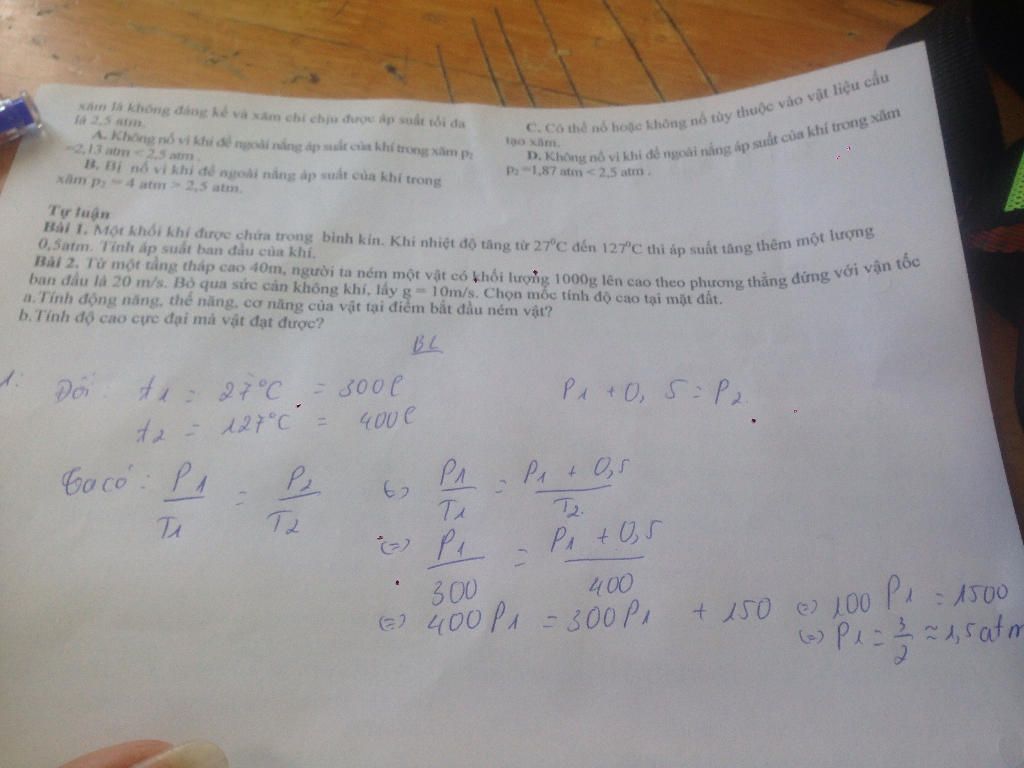 xăm là không đáng kể và xăm chỉ chịu được áp suất tối đa
là 2,5 atm.
A. Không nổ vì khi để ngoài nắng áp suất của khí trong xăm p₂
=2,13 atm < 2,5 atm .
B. Bị nổ vì khi để ngoài nắng áp suất của khí trong
xăm p₂ = 4 atm > 2,5 atm.
C. Có thể nổ hoặc không nổ tùy thuộc vào vật liệu cấu
tạo xăm.
D. Không nổ vì khi để ngoài nắng áp suất của khí trong xăm
p₂ =1,87 atm < 2,5 atm .
Tự luận
Bài 1. Một khối khí được chứa trong bình kín. Khi nhiệt độ tăng từ 27⁰C đến 127⁰C thì áp suất tăng thêm một lượng
0,5atm. Tính áp suất ban đầu của khí.
Bài 2. Từ một tầng tháp cao 40m, người ta ném một vật có khối lượng 1000g lên cao theo phương thẳng đứng với vận tốc
ban đầu là 20 m/s. Bỏ qua sức cản không khí, lấy g = 10m/s. Chọn mốc tính độ cao tại mặt đất.
a.Tính động năng, thế năng, cơ năng của vật tại điểm bắt đầu ném vật?
b.Tính độ cao cực đại mà vật đạt được?
BL
1:
Đổi: t1 = 27°C = 300
P1 + 0,5 = P2
t2 = 127°C = 400
Ta có: P1/T1 = P2/T2
(=) P1/T1 = P1 + 0,5/T2
(=) P1/300 = P1 + 0,5/400
(=) 400P1 = 300P1 + 150 (=) 100 P1 = 1500
(=) P1 = 3/2 ≈ 1,5atm